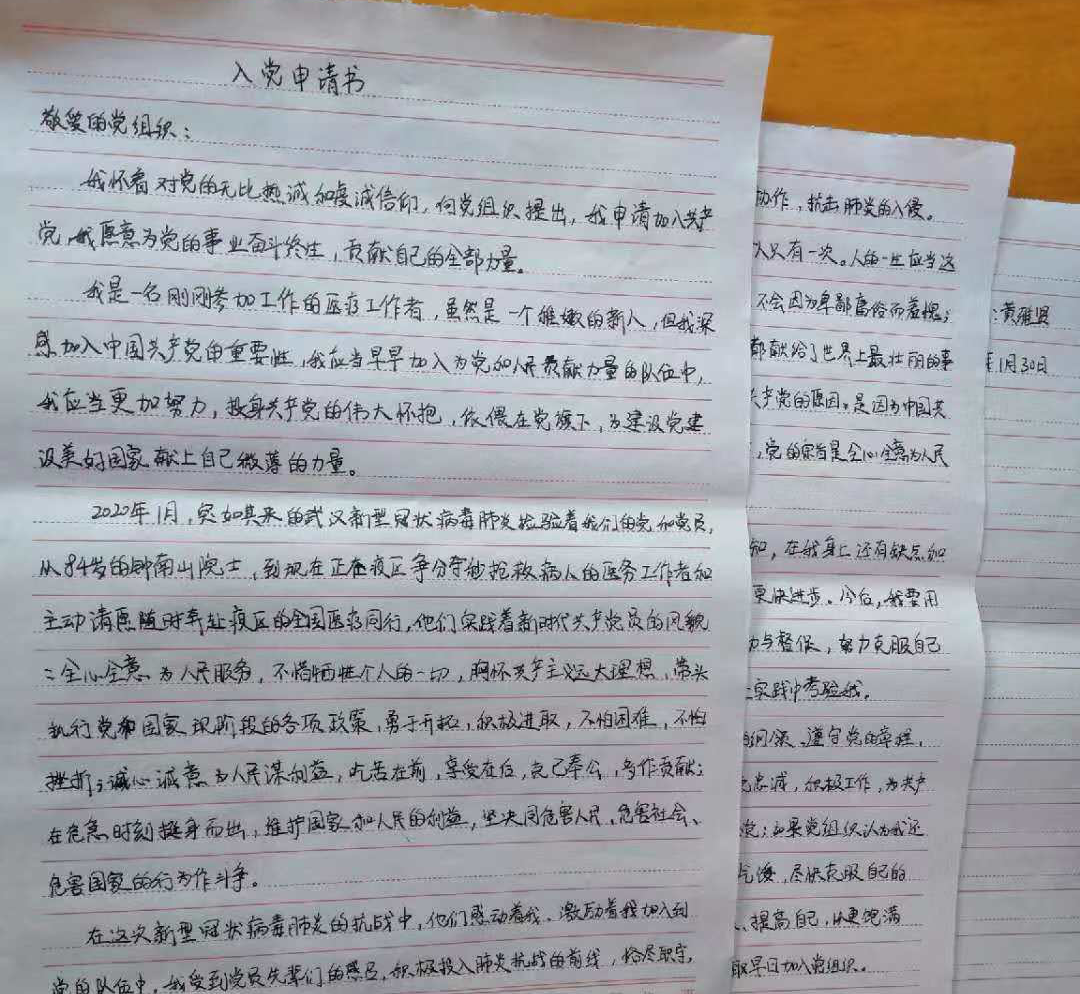 入党申请书
敬爱的党组织：
我怀着对党的无比热诚和虔诚信仰，向党组织提出，我申请加入共产
党，我愿意为党的事业奋斗终生，贡献自己的全部力量。
我是一名刚刚参加工作的医疗工作者，虽然是一个稚嫩的新人，但我深
感加入中国共产党的重要性，我应当早早加入为党和人民贡献力量的队伍中，
我应当更加努力，投身共产党的伟大怀抱，依偎在党旗下，为建设党建
设美好国家献上自己微薄的力量。
2020年1月，突如其来的武汉新型冠状病毒肺炎检验着我们的党和党员，
从84岁的钟南山院士，到现在正在疫区争分夺秒抢救病人的医务工作者和
主动请愿随时奔赴疫区的全国医疗同行，他们实践着新时代共产党员的风貌
：全心全意为人民服务，不惜牺牲个人的一切，胸怀共产主义远大理想，带头
执行党和国家现阶段的各项政策，勇于开拓，积极进取，不怕困难，不怕
挫折；诚心诚意为人民谋利益，吃苦在前，享受在后，克己奉公，多作贡献；
在危急时刻挺身而出，维护国家和人民的利益，坚决同危害人民、危害社会、
危害国家的行为作斗争。
在这次新型冠状病毒肺炎的抗战中，他们感动着我、激励着我加入到
党的队伍中，我受到党员先辈们的感召，积极投入肺炎抗战的前线，恪尽职守，
协作，抗击肺炎的入侵。
人只有一次。人的一生应当这
不会因为卑鄙庸俗而羞愧；
都献给了世界上最壮丽的事
共产党的原因。是因为中国共
，党的宗旨是全心全意为人民
知，在我身上还有缺点和
更快进步。今后，我要用
力与整保，努力克服自己
实践中考验我。
纲领、遵守党的章程，
忠诚，积极工作，为共产
；如果党组织认为我还
气馁，尽快克服自己的
、提高自己，以更饱满
取早日加入党组织。
：黄雅贤
年1月30日